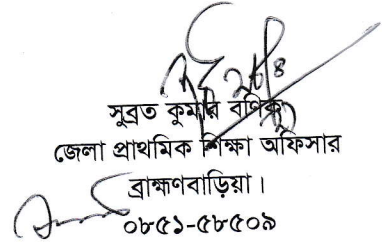 সুব্রত কুমার বণিক
জেলা প্রাথমিক শিক্ষা অফিসার
ব্রাহ্মণবাড়িয়া।
০৮৫১-৫৮৫০৯